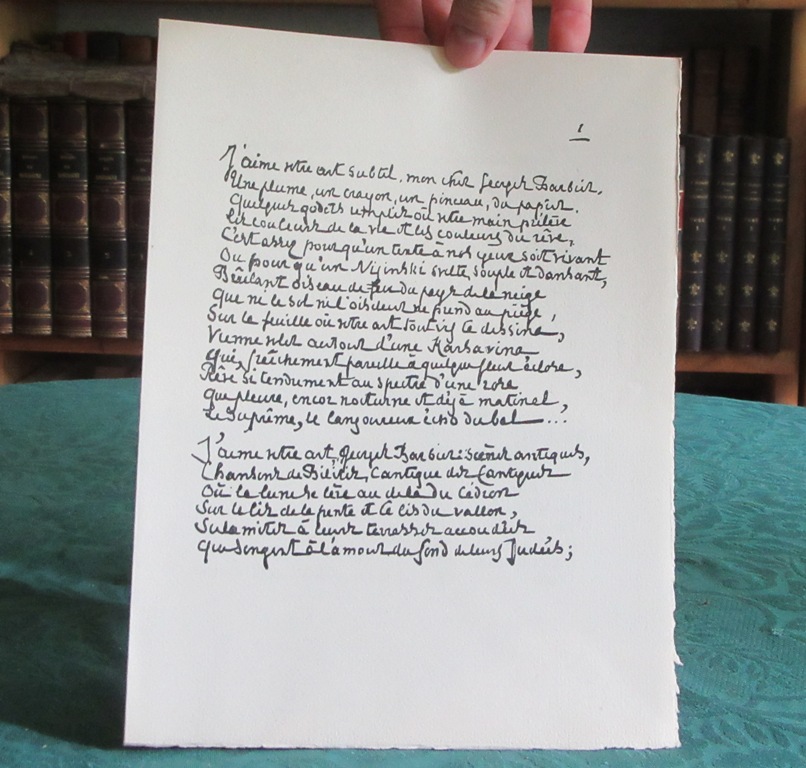 1
J'aime votre art subtil, mon cher George Barbier.
Une plume, un crayon, un pinceau, du papier.
Quelques godets emplis où votre main prélève
Les couleurs de la vie et les couleurs du rêve,
C'est assez pour qu'un texte à nos yeux soit vivant
Ou pour qu'un Nijinski svelte, souple et dansant,
Brûlant oiseau de feu du pays de la neige
Que ni le sol ni l'oiseleur ne prend au piège,
Sur la feuille où votre art tout vif le dessina,
Vienne voler autour d'une Karsavina
Qui, fraîchement pareille à quelque fleur éclose,
Rêve si tendrement au spectre d'une rose
Que pleure, encor nocturne et déjà matinal,
Le suprême, le langoureux écho du bal...
J'aime votre art, George Barbier: scènes antiques,
Chansons de Bilitis, Cantique des Cantiques
Où la lune se lève au delà du Cédron
Sur le lis de la pente et le lis du vallon,
Sulamites à leurs terrasses accoudées
Qui songent à l'amour du fond de leurs Judées;